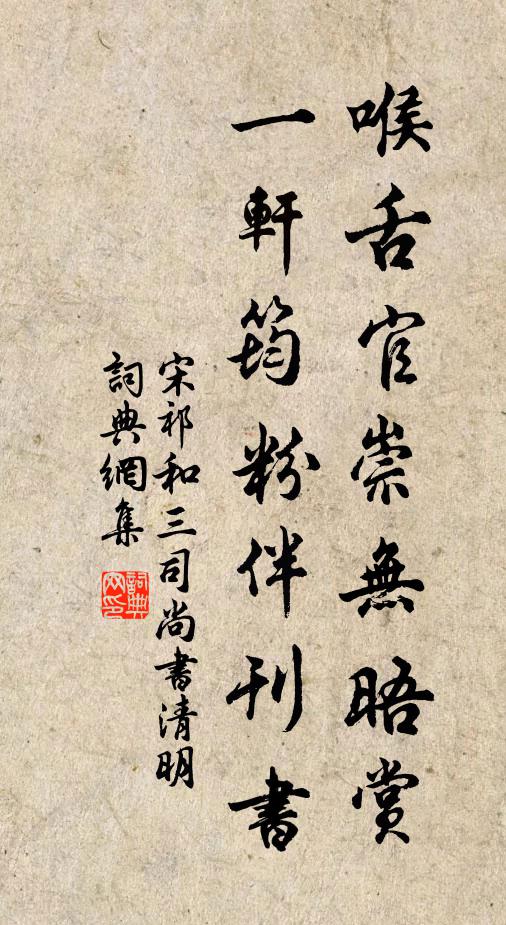 喉舌官崇無晤賞
一軒筠粉伴刊書
宋祁和三司尚書清明
詞典網集
詞典网印